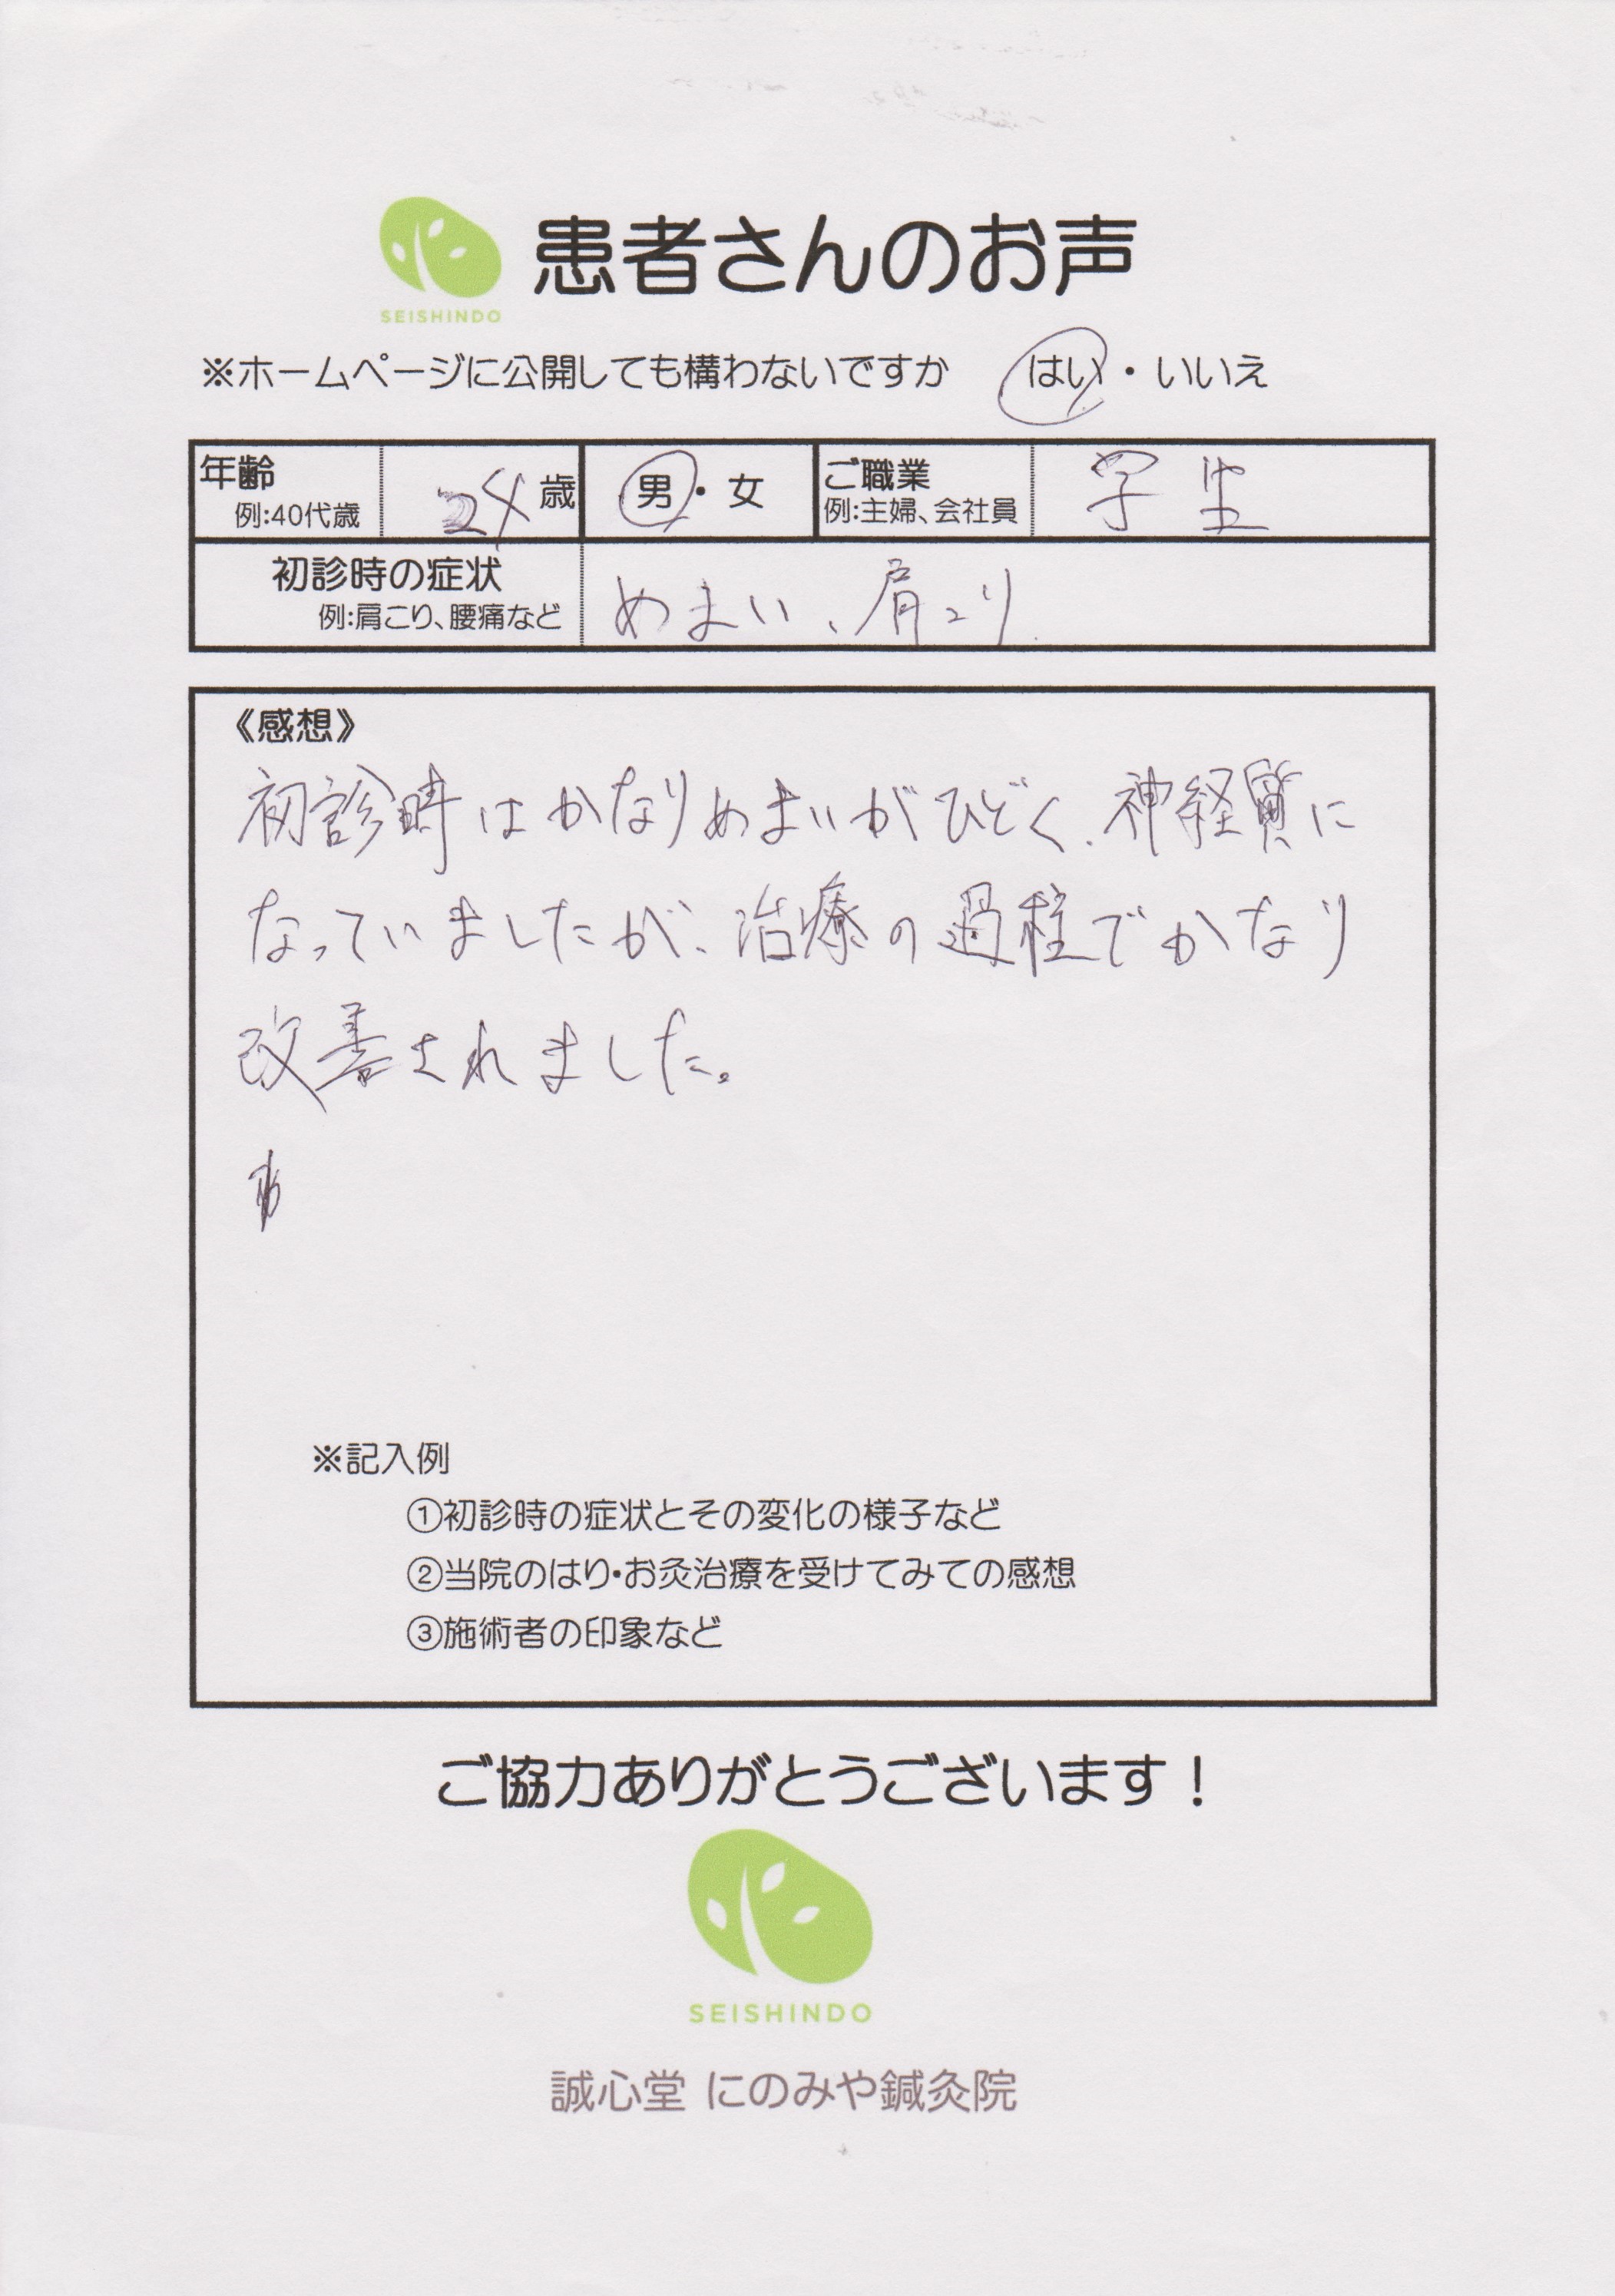 患者さんのお声
SEISHINDO
※ホームページに公開しても構わないですか はい・いいえ
年齢 24歳 男・女 ご職業 学生
例:40代歳 例:主婦、会社員
初診時の症状 めまい、肩こり
例:肩こり、腰痛など
《感想》
初診時はかなりめまいがひどく、神経質に
なっていましたが、治療の過程でかなり
改善されました。
※記入例
①初診時の症状とその変化の様子など
②当院のはり・お灸治療を受けてみての感想
③施術者の印象など
ご協力ありがとうございます！
SEISHINDO
誠心堂 にのみや鍼灸院